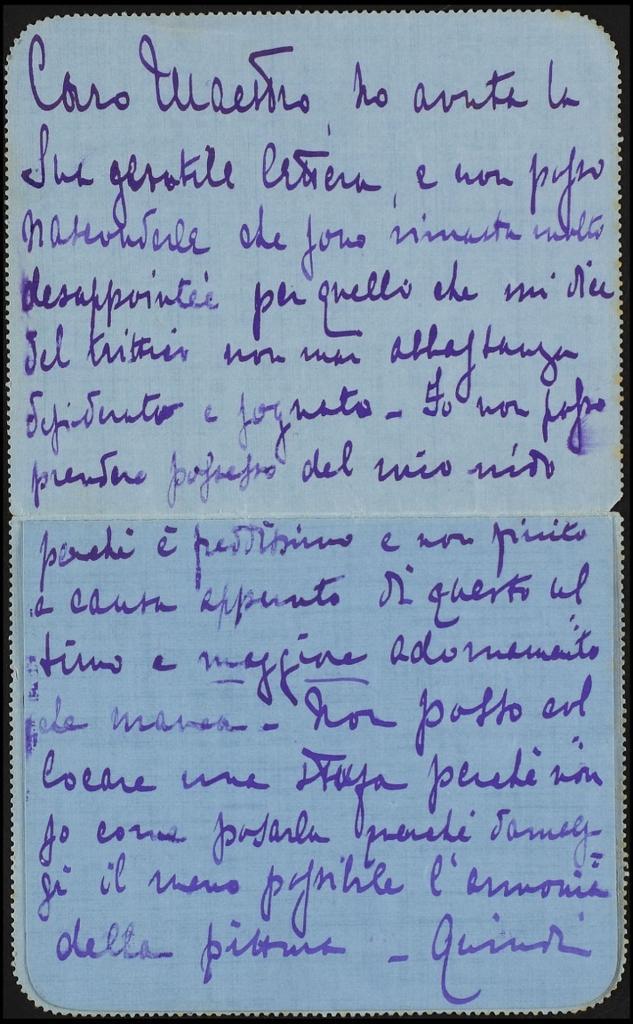 Caro Maestro, ho avuta la
Sua gentile lettera, e non posso
nasconderle che sono rimasta molto
desappointée per quello che mi dice
del trittico non mai abbastanza
desiderato e sognato - Io non posso
prendere possesso del mio nido
perché è freddissimo e non finito
a causa appunto di questo ul
timo e maggiore adornamento
che manca - Non posso col
locare una stufa perché non
so come posarla perché danneg-
gi il meno possibile l'armonia
della pittura - Quindi